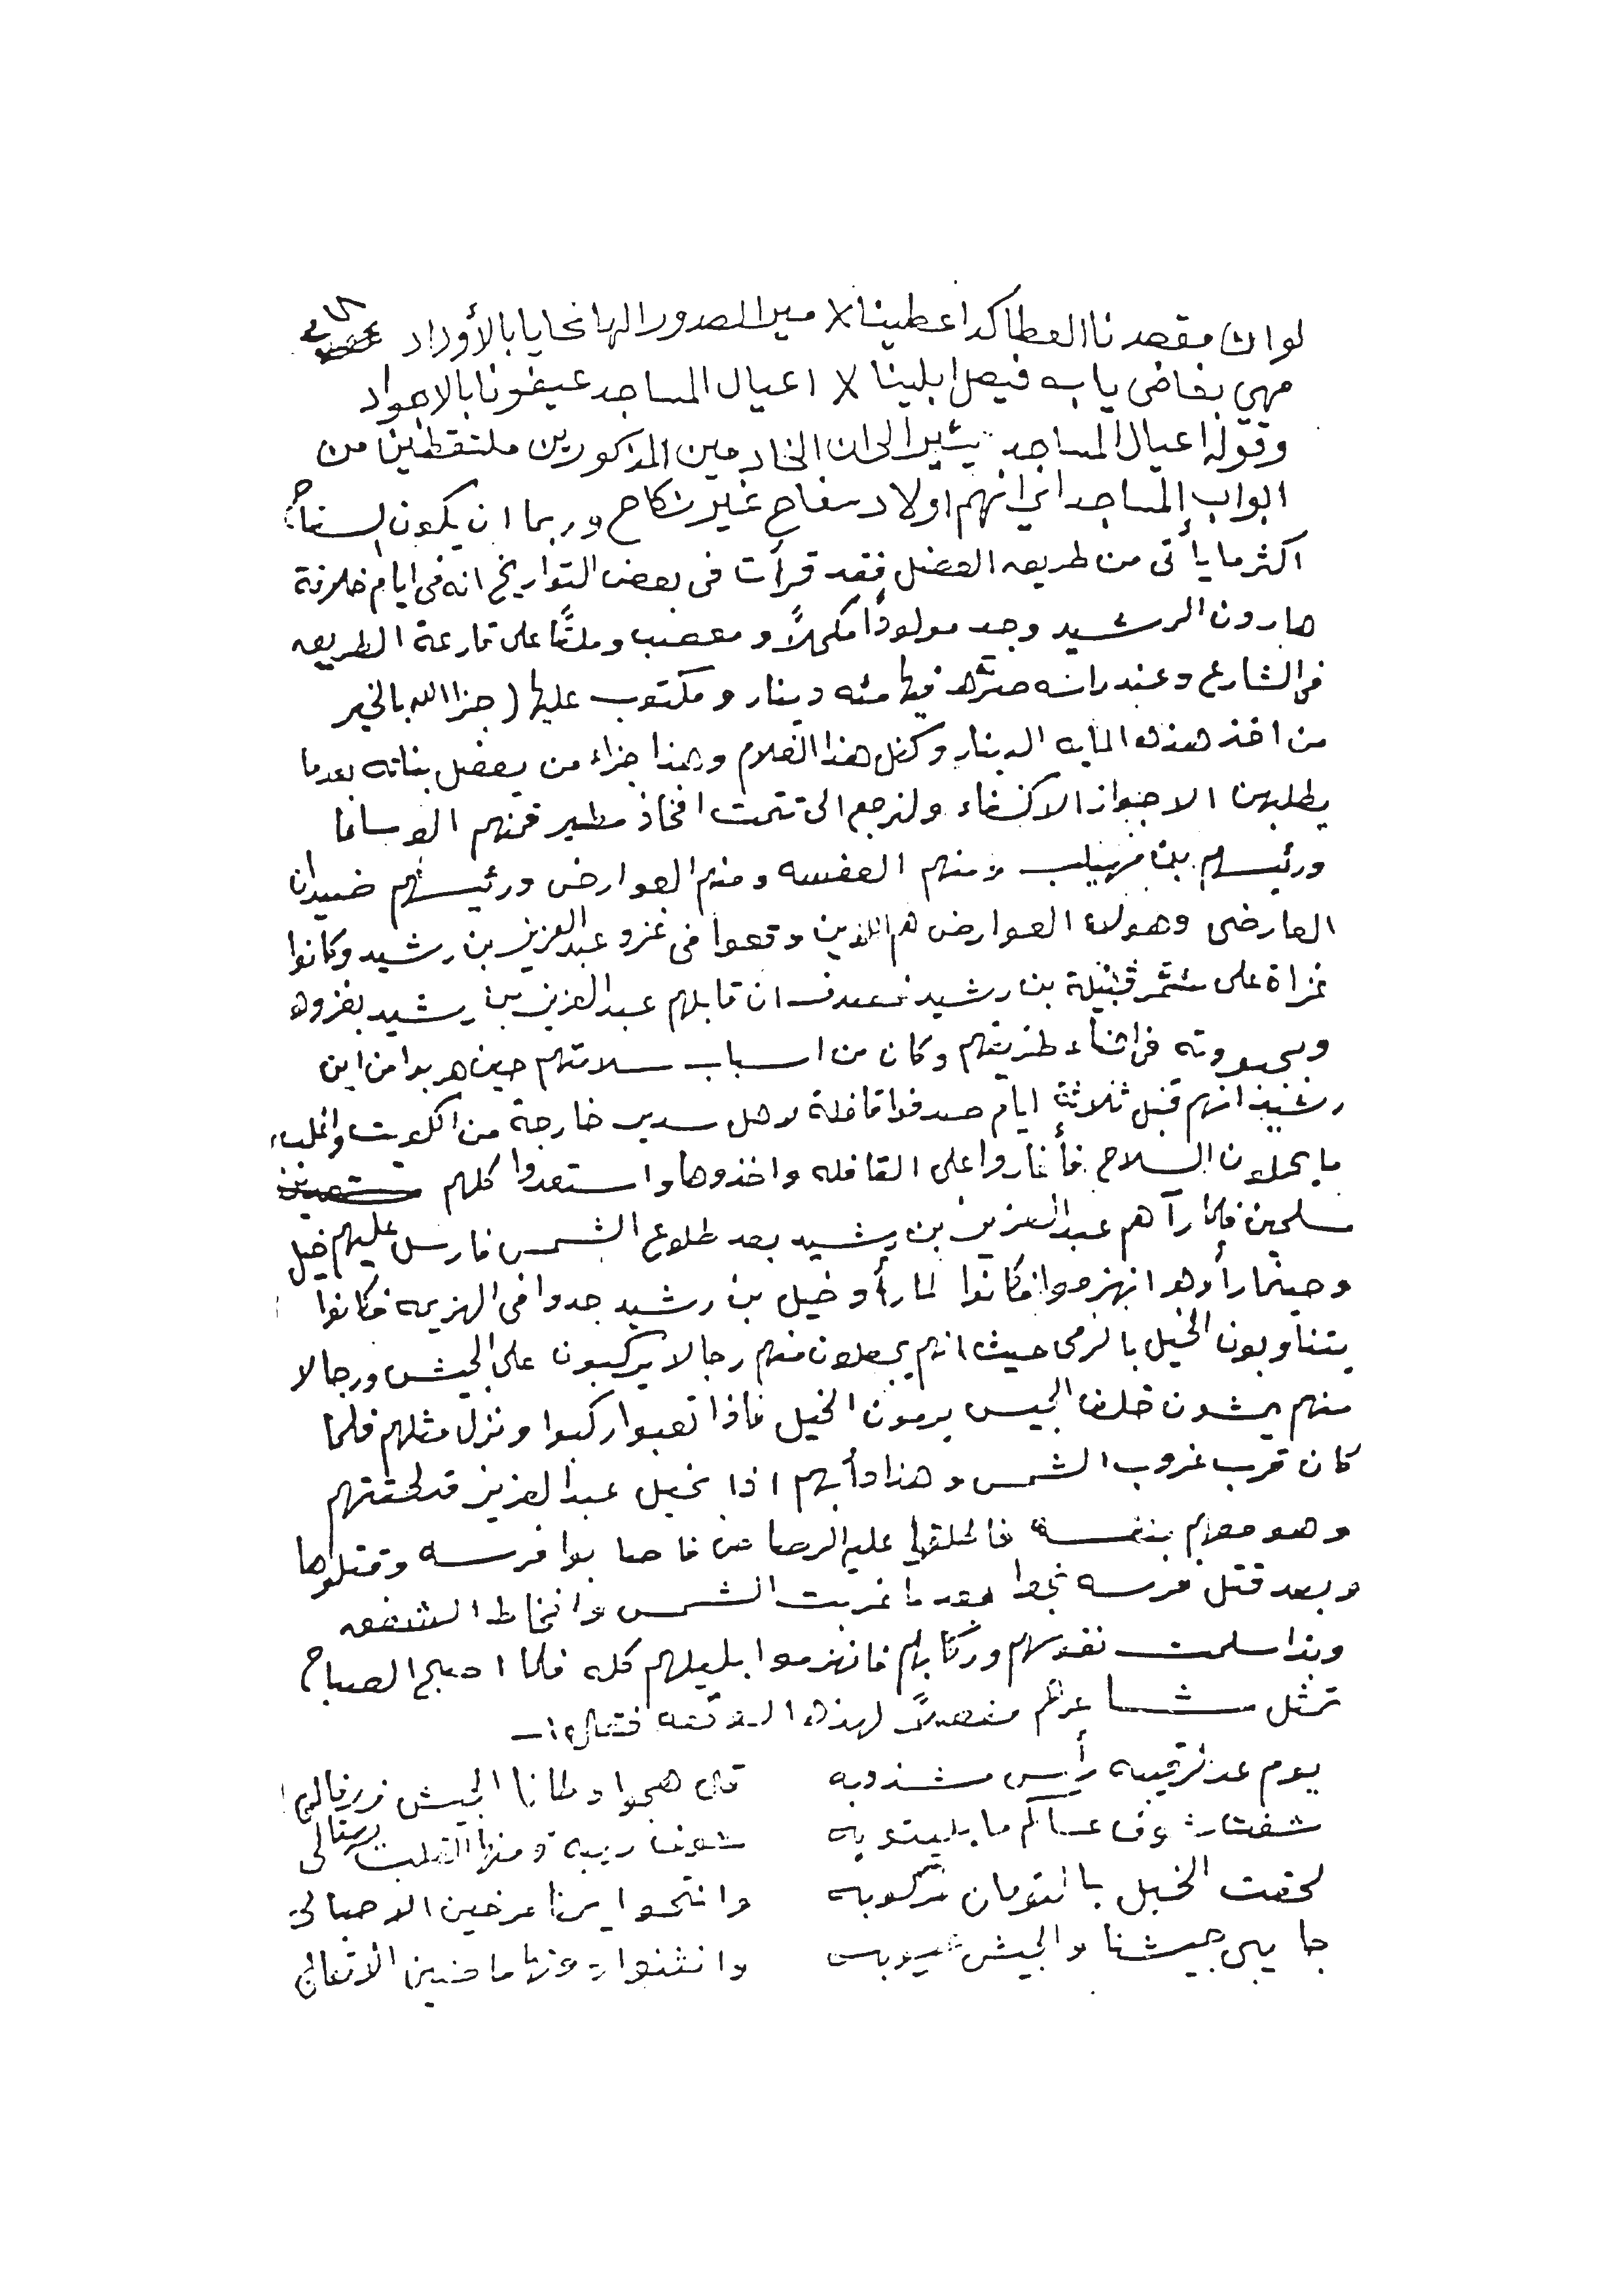 لو ان مقصدنا العطا كد اعطينا لا مير الصدور الها خايا بالأوراد
مهي بغاضي يا به فيصل ابلينا لا اعيال المساجد عيفونا بالاجواد
وقوله اعيال المساجد يشير الى ان الخادمين المذكورين ملتقطين من
ابواب المساجد اي انهم اولاد سفاح غير نكاح وربما ان يكون السفاح
اكثر ما يأتى من طريق العضل فقد قرأت فى بعض التواريخ انه فى ايام خلافة
هارون الرشيد وجد مولوداً مكحلاً و معضب وملفاً على قارعة الطريق
فى الشارع وعند راسه صره فيها مئه دينار و مكتوب عليها ( جزا الله بالخير
من اخذ هذه المايه الدينار وكفل هذا الغلام وهذا جزاء من يعضل بناته بعدما
يطلبهن الاجواز الاكفاء ولنرجع الى تتمت افخاذ مطير فمنهم الوساما
ورئيسهم بن مهيلب ومنهم العفسه ومنهم العوارض ورئيسهم ضبيدان
العارضى وهولاء العوارض هم اللذين وقعوا فى غزو عبد العزيز بن رشيد وكانوا
غزاة على شمر قبيلة بن رشيد فصدف ان قابلهم عبد العزيز بن رشيد بغزوه
فى اثناء طريقهم وكان من اسباب سلامتهم حين هربوا من ابن
رشيد انهم قبل ثلاثة ايام صدفوا قافلة لاهل سدير خارجة من الكويت واغلب
ما يحملون السلاح فأغاروا على القافله واخذوها واستعدوا كلهم
مسلحين فلما رآهم عبد العزيز بن رشيد بعد طلوع الشمس فارسل عليهم خيل
وحينما رأوها انهزموا فكانوا لما رأو خيل بن رشيد جدوا فى الهزيمه فكانوا
يتناوبون الخيل بالرمى حيث انهم يجعلون منهم رجالا يركبون على الجيش ورجالا
منهم يمشون خلف الجيس يرمون الخيل فاذا تعبوا ركبوا ونزل مثلهم فلما
كان قرب غروب الشمس وهذا دأبهم اذا بخيل عبد العزيز قد لحقتهم
وهو معهم بنفسه فاطلقوا عليه الرصاص فاصابوا فرسه وقتلوها
وبعد قتل فرسه نجوا بعد ما غربت الشمس وانحاط الشفق
وبذا سلمت نفوسهم وركابهم فانهزموا بليلهم كله فلما اصبح الصباح
تمثل شاعرهم مفصلاً لهذه الوقعه فقال :ـ
يوم عد لرقيبه رأيس مشذوبه قال هجوا وطانا الجيش
شفتار شوف عساكم ما بليتو به شوف ريبه ومنها القلب
لحقت الخيل بالتومان مركوبه وانتحوا يمنا مرخين الاحبالي
جا يمى جيشنا والجيش وانثنوا